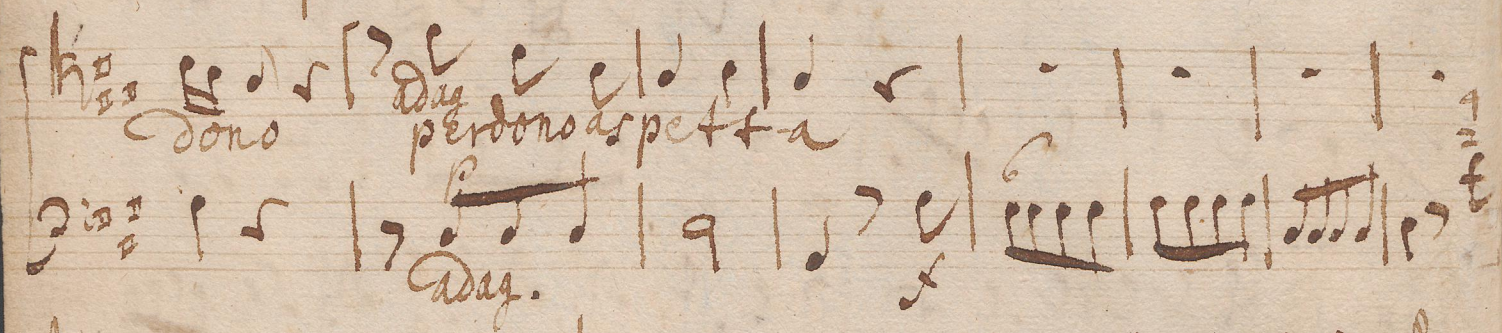 adag
dono perdono aspetta
p 6
adag. f